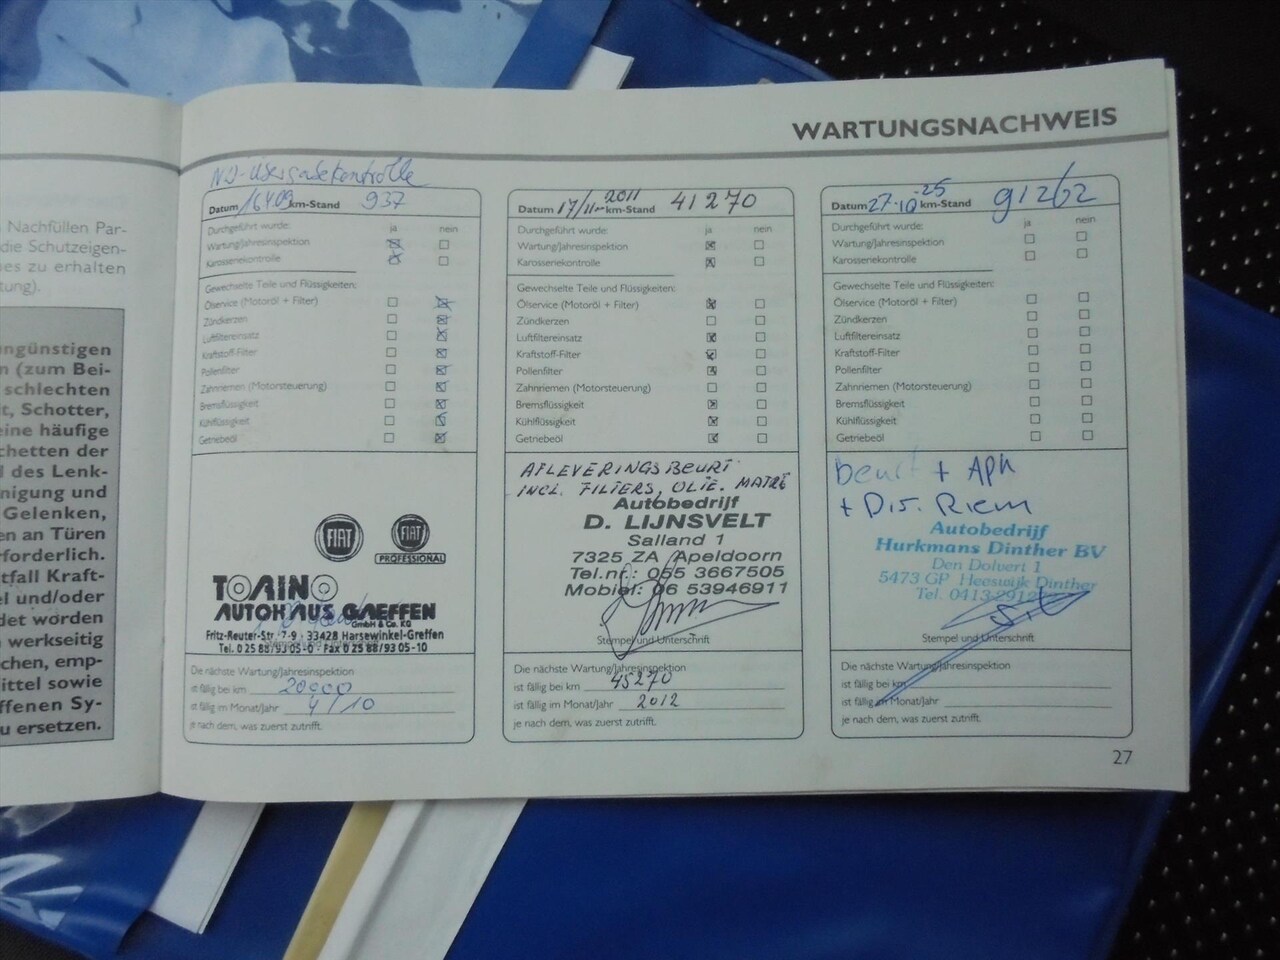 WARTUNGSNACHWEIS
Nachfüllen Par-
die Schutzeigen-
zu erhalten
ungünstigen
(zum Bei-
schlechten
Schotter,
eine häufige
chetten der
des Lenk-
nigung und
Gelenken,
en an Türen
rforderlich.
tfall Kraft-
und/oder
det worden
werkseitig
chen, emp-
ittel sowie
ffenen Sy-
u ersetzen.
Datum 16.4.09 km-Stand 937
Durchgeführt wurde: ja nein
Wartung/Jahresinspektion
Karosseriekontrolle
Gewechselte Teile und Flüssigkeiten:
Ölservice (Motoröl + Filter)
Zündkerzen
Luftfiltereinsatz
Kraftstoff-Filter
Pollenfilter
Zahnriemen (Motorsteuerung)
Bremsflüssigkeit
Kühlflüssigkeit
Getriebeöl
FIAT FIAT
PROFESSIONAL
TORINO
AUTOHAUS GREFFEN
GmbH & Co. KG
Fritz-Reuter-Str. 7-9 · 33428 Harsewinkel-Greffen
Tel. 0 25 88/93 05-0 · Fax 0 25 88/93 05-10
Die nächste Wartung/Jahresinspektion
ist fällig bei km 20000
ist fällig im Monat/Jahr 4/10
je nach dem, was zuerst zutrifft.
Datum 17/11 2011 km-Stand 41270
Durchgeführt wurde: ja nein
Wartung/Jahresinspektion
Karosseriekontrolle
Gewechselte Teile und Flüssigkeiten:
Ölservice (Motoröl + Filter)
Zündkerzen
Luftfiltereinsatz
Kraftstoff-Filter
Pollenfilter
Zahnriemen (Motorsteuerung)
Bremsflüssigkeit
Kühlflüssigkeit
Getriebeöl
AFLEVERINGSBEURT
INCL. FILTERS, OLIE.
Autobedrijf
D. LIJNSVELT
Salland 1
7325 ZA Apeldoorn
Tel.nr.: 055 3667505
Mobiel: 06 53946911
Stempel und Unterschrift
Die nächste Wartung/Jahresinspektion
ist fällig bei km 45270
ist fällig im Monat/Jahr 2012
je nach dem, was zuerst zutrifft.
Datum 27-10-25 km-Stand 91262
Durchgeführt wurde: ja nein
Wartung/Jahresinspektion
Karosseriekontrolle
Gewechselte Teile und Flüssigkeiten:
Ölservice (Motoröl + Filter)
Zündkerzen
Luftfiltereinsatz
Kraftstoff-Filter
Pollenfilter
Zahnriemen (Motorsteuerung)
Bremsflüssigkeit
Kühlflüssigkeit
Getriebeöl
beurt + APK
+ Dis. Riem
Autobedrijf
Hurkmans Dinther BV
Den Dolvert 1
5473 GP Heeswijk Dinther
Tel.
Stempel und Unterschrift
Die nächste Wartung/Jahresinspektion
ist fällig bei km
ist fällig im Monat/Jahr
je nach dem, was zuerst zutrifft.
27